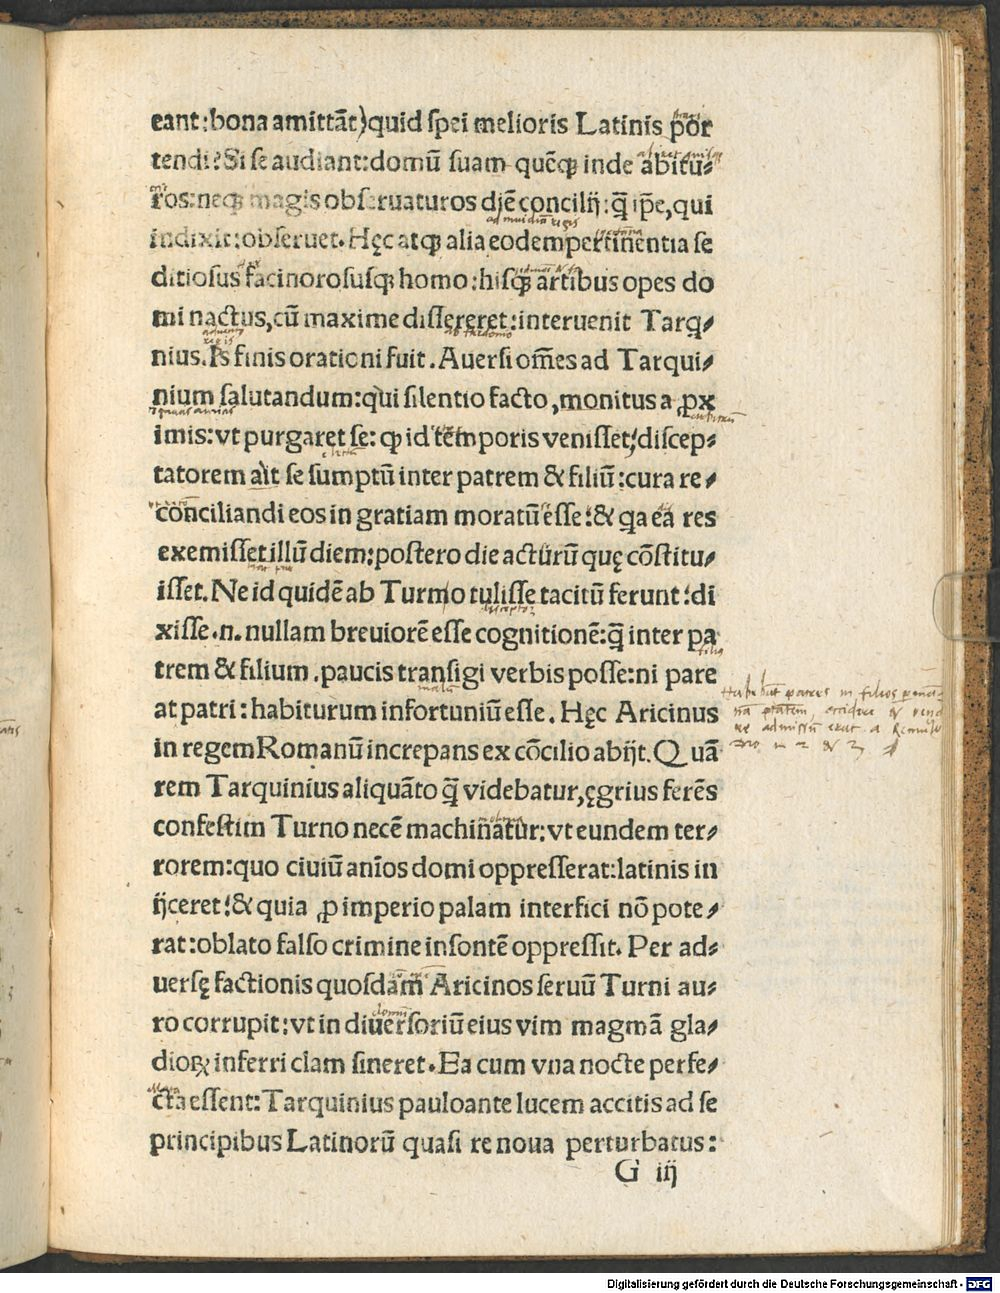 eant:bona amittãt)quid ſpei melioris Latinis por
tendi?Si ſe audiant:domũ ſuam quẽqꝫ inde abitu⸗
ros:neqꝫ magis obſeruaturos diẽ concilij:q̃ ip̃e,qui
indixit:obſeruet.Hęc atqꝫ alia eodem pertinentia ſe
ditioſus facinoroſuſqꝫ homo:hiſqꝫ artibus opes do
mi nactus,cũ maxime diſſereret:interuenit Tarq⸗
nius.Is finis orationi fuit.Auerſi om̃es ad Tarqui⸗
nium ſalutandum:qui ſilentio facto,monitus a ꝓx
imis:vt purgaret ſe:ꝙ id temporis veniſſet,diſcep⸗
tatorem ait ſe ſumptũ inter patrem & filiũ:cura re⸗
conciliandi eos in gratiam moratũ eſſe:& qa ea res
exemiſſet illũ diem:poſtero die acturũ quę cõſtitu⸗
iſſet.Ne id quidẽ ab Turno tuliſſe tacitũ ferunt:di
xiſſe.n.nullam breuiorẽ eſſe cognitionẽ:q̃ inter pa
trem & filium.paucis tranſigi verbis poſſe:ni pare
at patri:habiturum infortuniũ eſſe.Hęc Aricinus
in regem Romanũ increpans ex cõcilio abijt.Quã
rem Tarquinius aliquãto q̃ videbatur,ęgrius ferẽs
confeſtim Turno necẽ machinatur:vt eundem ter⸗
rorem:quo ciuiũ anĩos domi oppreſſerat:latinis in
ijceret:& quia ꝓ imperio palam interfici nõ pote⸗
rat:oblato falſo crimine inſontẽ oppreſſit.Per ad⸗
uerſę factionis quoſdam Aricinos ſeruũ Turni au⸗
ro corrupit:vt in diuerſoriũ eius vim magmã gla⸗
dioꝝ inferri clam ſineret.Ea cum vna nocte perfe⸗
cta eſſent:Tarquinius paulo ante lucem accitis ad ſe
principibus Latinorũ quaſi re noua perturbatus:
G iij
patres in filios
admissũ erat a
Digitalisierung gefördert durch die Deutsche Forschungsgemeinschaft - DFG